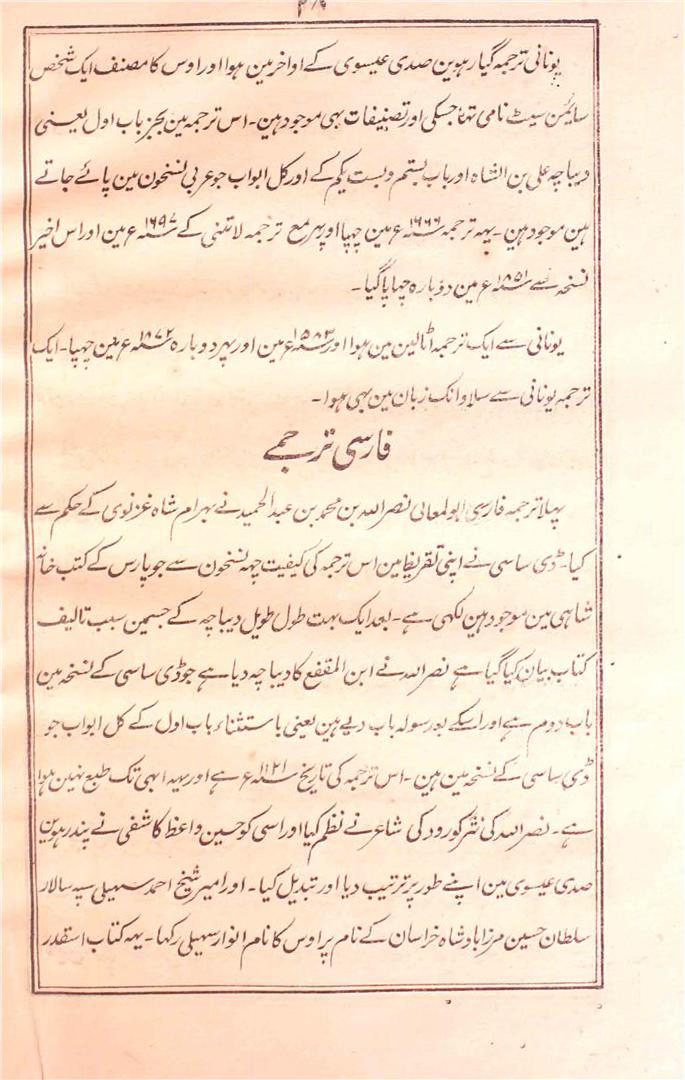 یونانی ترجمہ گیارہوین صدی عیسوی کے اواخر مین ہوا اور اوس کا مصنف ایک شخص
سائمن سیٹ نامی تھا جسکی اور تصنیفات بہی موجود ہین۔ اس ترجمہ مین بجز باب اول یعنی
دیباچہ علی بن الشاہ اور باب بستم و بست یکم کے اور کل ابواب جو عربی نسخون مین پائے جاتے
ہین موجود ہین۔ یہہ ترجمہ سنہ ۱۶۶۶ ع مین چہپا اور پہر مع ترجمہ لاتنی کے سنہ ۱۶۹۷ ع مین اور اس اخیر
نسخہ سے سنہ ۱۸۵۱ ع مین دوبارہ چہاپا گیا۔
یونانی سے ایک ترجمہ اٹالین مین ہوا اور سنہ ۱۵۸۳ ع مین اور پہر دوبارہ سنہ ۱۸۷۲ ع مین چہپا۔ ایک
ترجمہ یونانی سے سلاوانک زبان مین بہی ہوا۔
فارسی ترجمے
پہلا ترجمہ فارسی ابو لمعالی نصر اللہ بن محمد بن عبد الحمید نے بہرام شاہ غزنوی کے حکم سے
کیا۔ ڈی ساسی نے اپنی تقریظ مین اس ترجمہ کی کیفیت چہہ نسخون سے جو پارس کے کتب خانہ
شاہی مین موجود ہین لکہی ہے۔ بعد ایک بہت طول طویل دیباچہ کے جسمین سبب تالیف
کتاب بیان کیا گیا ہے نصر اللہ نے ابن المقفع کا دیباچہ دیا ہے جو ڈی ساسی کے نسخہ مین
باب دوم ہے اور اسکے بعد سولہ باب دیے ہین یعنی باستثناء باب اول کے کل ابواب جو
ڈی ساسی کے نسخہ مین ہین۔ اس ترجمہ کی تاریخ سنہ ۱۱۲۱ ع ہے اور یہہ ابہی تک طبع نہین ہوا
ہے۔ نصر اللہ کی نثر کو رودکی شاعر نے نظم کیا اور اسی کو حسین واعظ کاشفی نے پندرہوین
صدی عیسوی مین اپنے طور پر ترتیب دیا اور تبدیل کیا۔ اور امیر شیخ احمد سہیلی سپہ سالار
سلطان حسین مرزا بادشاہ خراسان کے نام پر اوس کا نام انوار سہیلی رکہا۔ یہہ کتاب اسقدر